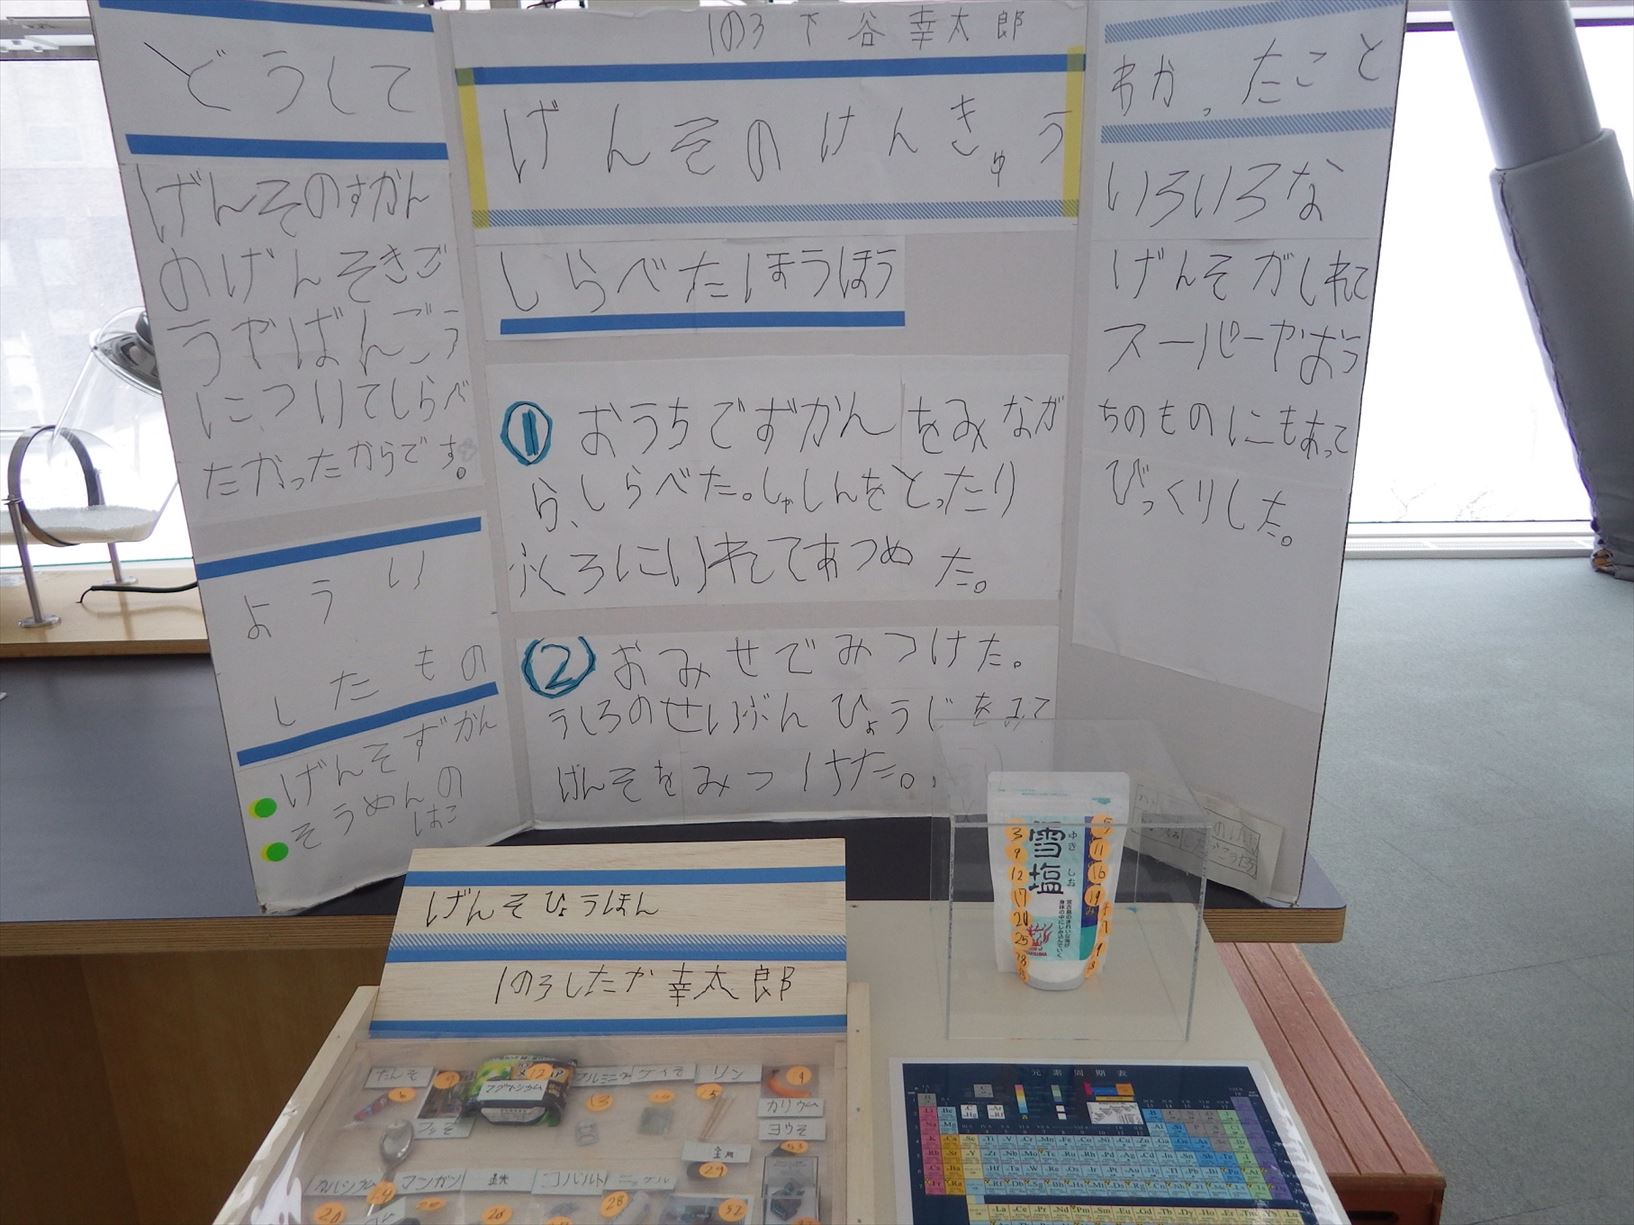 どうして
げんそのずかん
のげんそきご
うやばんごう
についてしらべ
たかったからです。
ようい
したもの
げんそずかん
そうめんの
はこ
1の3 下谷幸太郎
げんそのけんきゅう
しらべたほうほう
① おうちでずかんをみなが
ら、しらべた。しゃしんをとったり
ふくろにいれてあつめた。
② おみせでみつけた。
うしろのせいぶんひょうじをみて
げんそをみつけた。
わかったこと
いろいろな
げんそがしれて
スーパーやおう
ちのものにもあって
びっくりした。
げんそひょうほん
1の3したや幸太郎
雪塩
ゆきしお
3
9
12
17
20
25
5
11
16
19
たんそ
マグネシウム
アルミニウム
ケイそ
リン
カリウム
フッそ
ヨウそ
銅
カルシウム
マンガン
鉄
コバルト
ニッケル
6
9
12
13
15
29
53
20
24
26
28
元素周期表